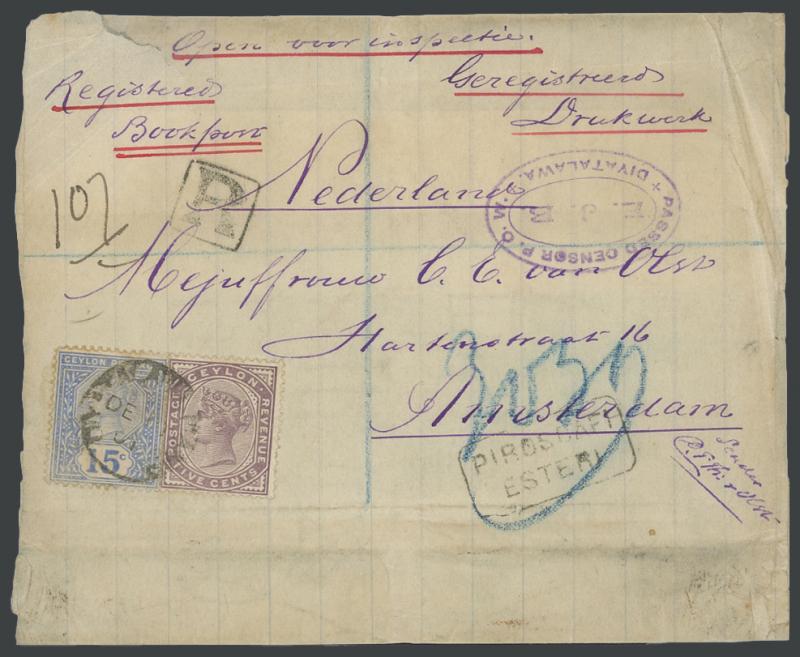 Open voor inspectie.
Registered
Bookpost
Geregistreerd
Drukwerk
R
Nederland
PASSED CENSOR P.O.M. + DIYATALAWA.
E. J. B
107
Mejuffrouw C. E. van Olst
Hartenstraat 16
Amsterdam
CEYLON
15c
DIYATALAWA
DE
01
CEYLON
POSTAGE
REVENUE
FIVE CENTS
PIROSCAFI
ESTERI
Sender